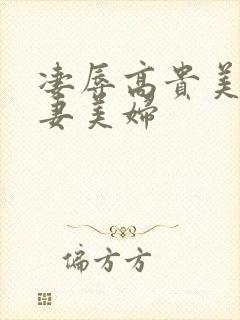 凄辱高贵美
妻美婦
偏方方